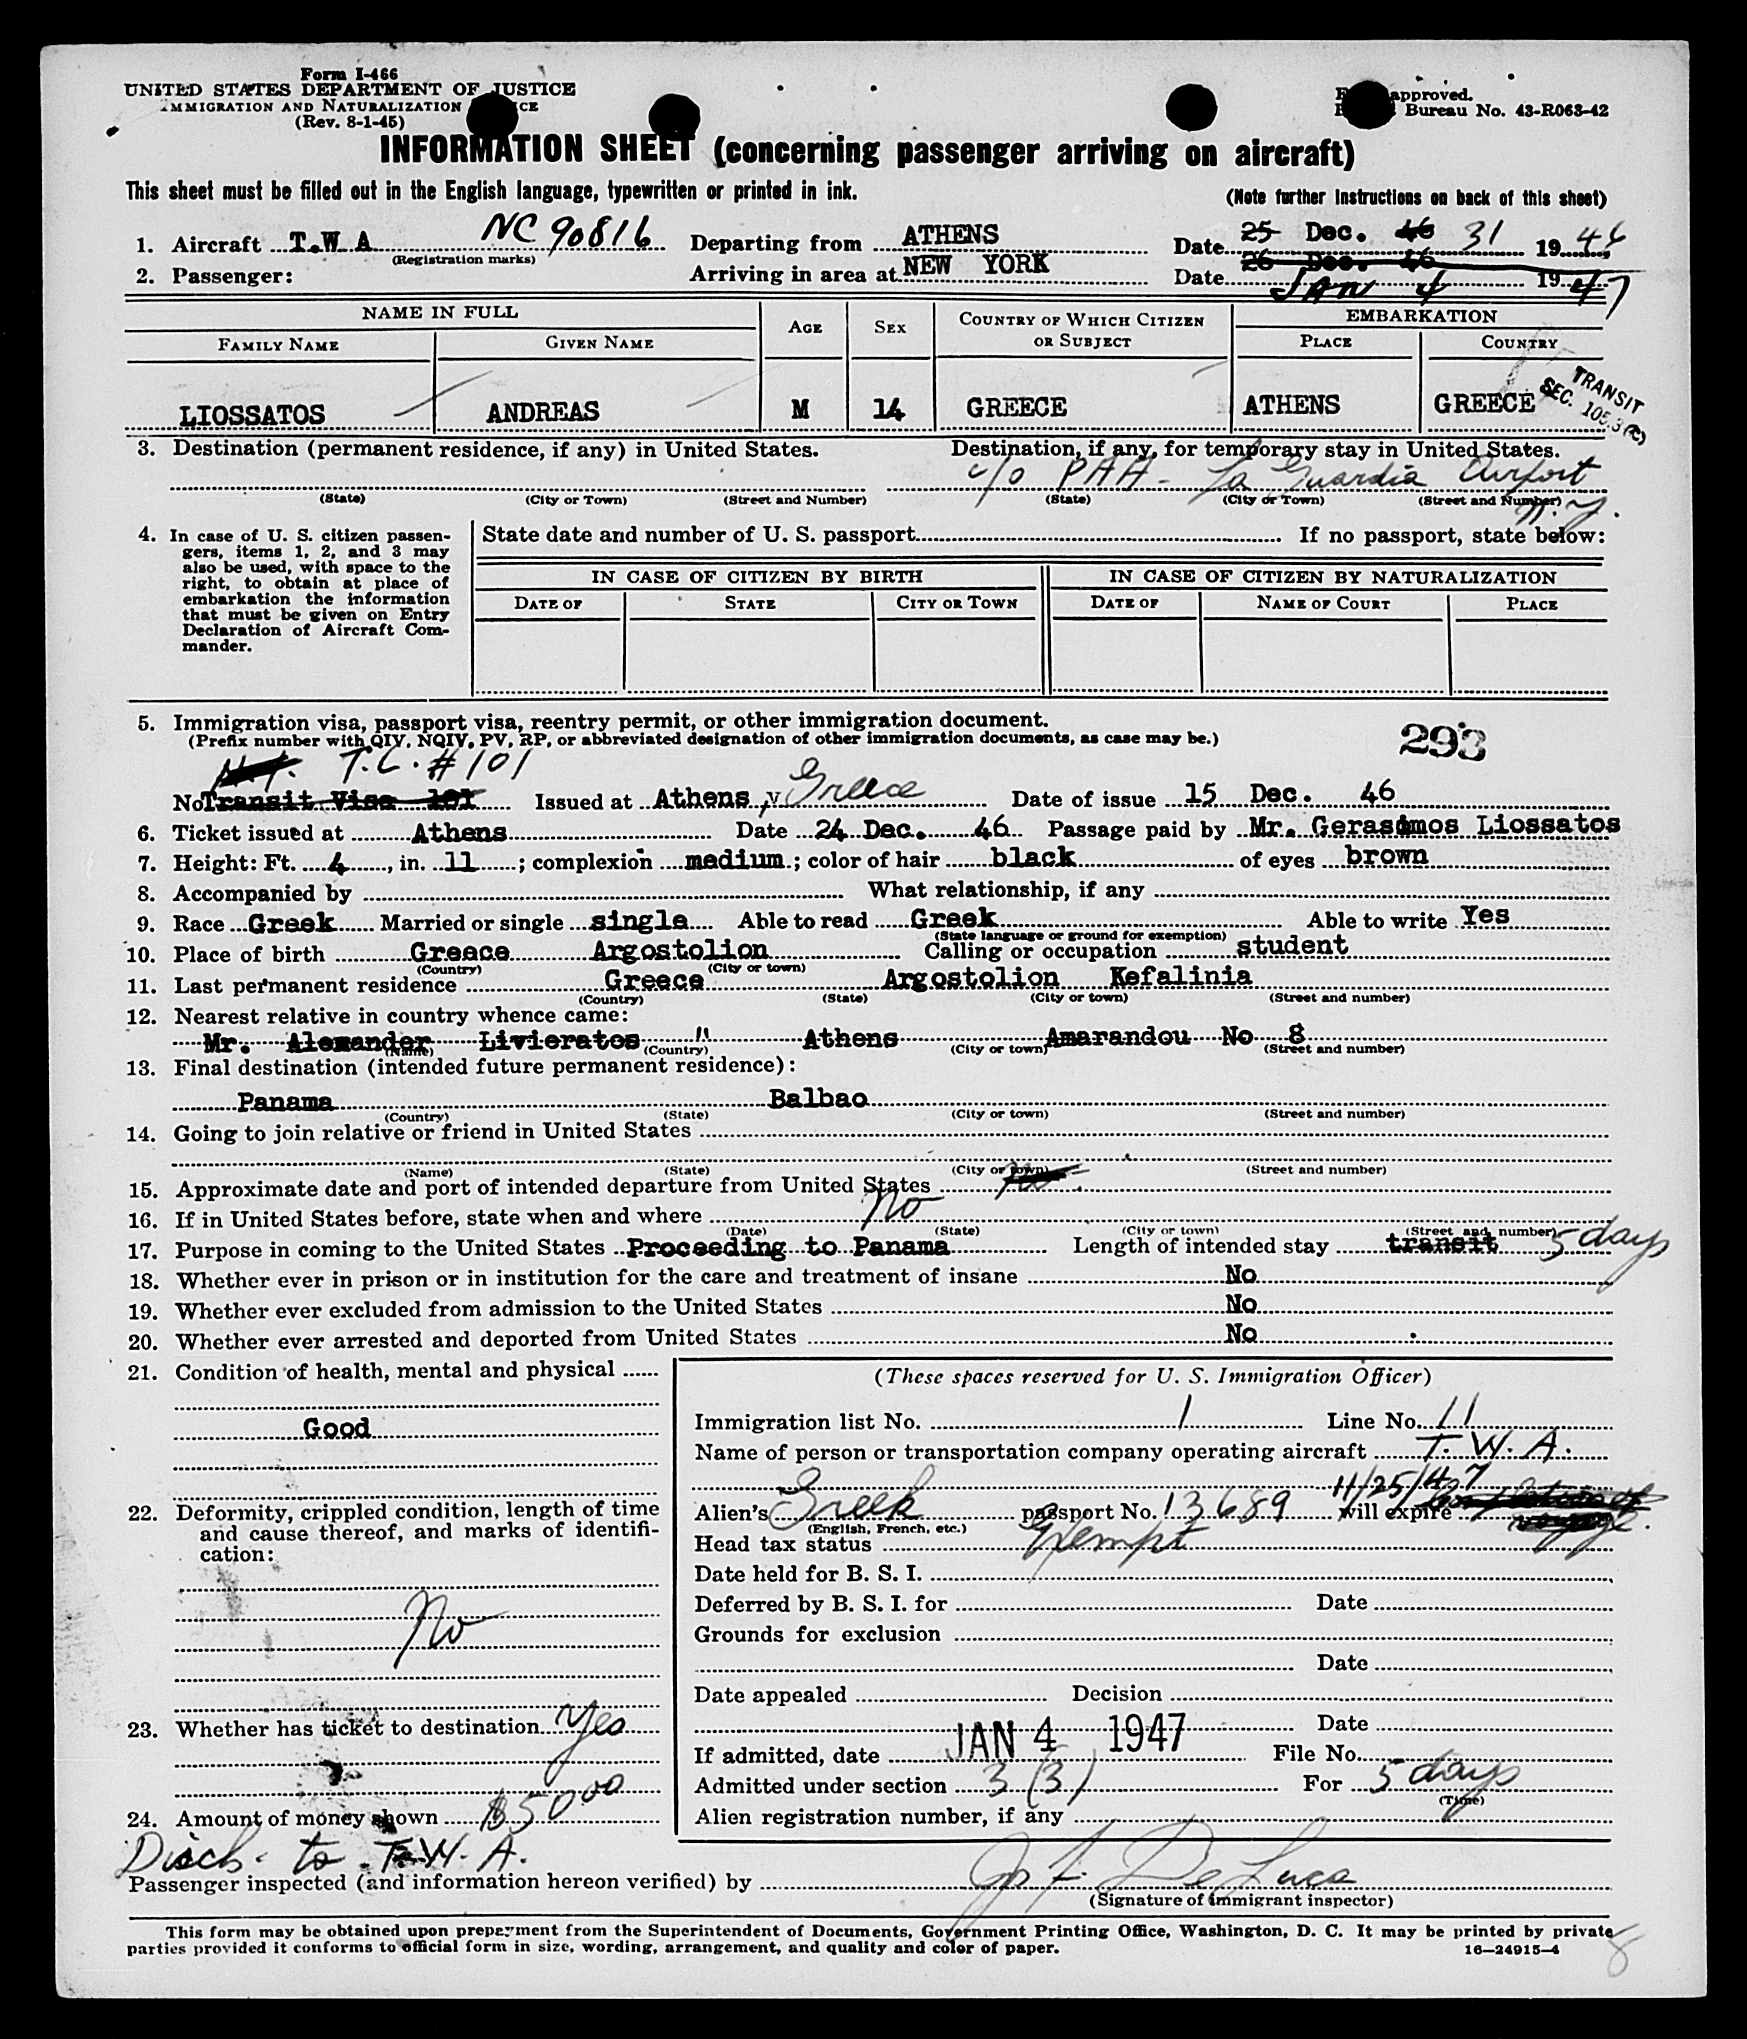 Form I-466
UNITED STATES DEPARTMENT OF JUSTICE
IMMIGRATION AND NATURALIZATION
(Rev. 8-1-45)
approved.
Bureau No. 43-R063-42
INFORMATION SHEET (concerning passenger arriving on aircraft)
This sheet must be filled out in the English language, typewritten or printed in ink.
(Note further instructions on back of this sheet)
1. Aircraft T.W A NC 90816 Departing from ATHENS Date 25 Dec. 46 31 1946
(Registration marks)
2. Passenger: Arriving in area at NEW YORK Date 26 Dec. 46 JAN 4 1947
NAME IN FULL AGE SEX COUNTRY OF WHICH CITIZEN OR SUBJECT EMBARKATION
FAMILY NAME GIVEN NAME PLACE COUNTRY
LIOSSATOS ANDREAS M 14 GREECE ATHENS GREECE
TRANSIT
SEC. 105.3(c)
3. Destination (permanent residence, if any) in United States. Destination, if any, for temporary stay in United States.
c/o PAA - La Guardia Airport
(State) (City or Town) (Street and Number) (State) (City or Town) (Street and Number)
N.Y.
4. In case of U. S. citizen passengers, items 1, 2, and 3 may also be used, with space to the right, to obtain at place of embarkation the information that must be given on Entry Declaration of Aircraft Commander.
State date and number of U. S. passport If no passport, state below:
IN CASE OF CITIZEN BY BIRTH IN CASE OF CITIZEN BY NATURALIZATION
DATE OF STATE CITY OR TOWN DATE OF NAME OF COURT PLACE
5. Immigration visa, passport visa, reentry permit, or other immigration document.
(Prefix number with QIV, NQIV, PV, RP, or abbreviated designation of other immigration documents, as case may be.)
293
T.C. #101
No Transit Visa 101 Issued at Athens, Greece Date of issue 15 Dec. 46
6. Ticket issued at Athens Date 24 Dec. 46 Passage paid by Mr. Gerasimos Liossatos
7. Height: Ft. 4, in. 11; complexion medium; color of hair black of eyes brown
8. Accompanied by What relationship, if any
9. Race Greek Married or single single Able to read Greek Able to write Yes
(State language or ground for exemption)
10. Place of birth Greece Argostolion Calling or occupation student
(Country) (City or town)
11. Last permanent residence Greece Argostolion Kefalinia
(Country) (State) (City or town) (Street and number)
12. Nearest relative in country whence came:
Mr. Alexander Livieratos " Athens Amarandou No 8
(Name) (Country) (City or town) (Street and number)
13. Final destination (intended future permanent residence):
Panama Balbao
(Country) (State) (City or town) (Street and number)
14. Going to join relative or friend in United States
(Name) (State) (City or town) (Street and number)
15. Approximate date and port of intended departure from United States
16. If in United States before, state when and where No
(Date) (State) (City or town) (Street and number)
17. Purpose in coming to the United States Proceeding to Panama Length of intended stay transit 5 days
18. Whether ever in prison or in institution for the care and treatment of insane No
19. Whether ever excluded from admission to the United States No
20. Whether ever arrested and deported from United States No
21. Condition of health, mental and physical
Good
22. Deformity, crippled condition, length of time and cause thereof, and marks of identification:
No
23. Whether has ticket to destination Yes
24. Amount of money shown $50 00
Disch. to T.W.A.
(These spaces reserved for U. S. Immigration Officer)
Immigration list No. 1 Line No. 11
Name of person or transportation company operating aircraft T. W. A.
11/25/47
Alien's Greek passport No. 13689 will expire
(English, French, etc.)
Head tax status Exempt
Date held for B. S. I.
Deferred by B. S. I. for Date
Grounds for exclusion
Date
Date appealed Decision
Date
If admitted, date JAN 4 1947 File No.
Admitted under section 3 (3) For 5 days
(Time)
Alien registration number, if any
Passenger inspected (and information hereon verified) by De Luca
(Signature of immigrant inspector)
This form may be obtained upon prepayment from the Superintendent of Documents, Government Printing Office, Washington, D. C. It may be printed by private
parties provided it conforms to official form in size, wording, arrangement, and quality and color of paper.
16—24915-4
8